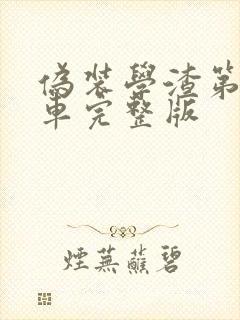 偽裝學渣第
車完整版
煙蕪蘸碧